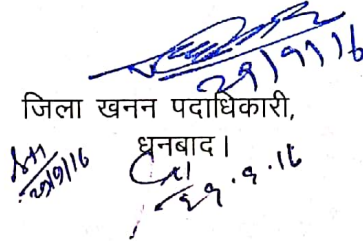 29/9/16
जिला खनन पदाधिकारी,
धनबाद।
29/9/16
29.9.16